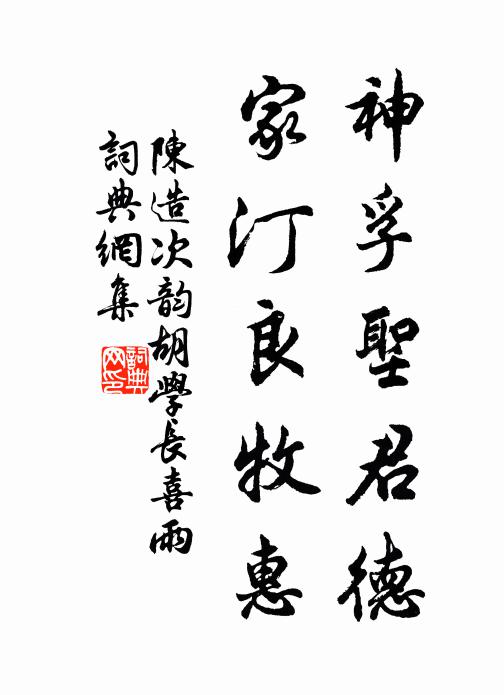 神孚聖君德
家汀良牧惠
陳造次韵胡學長喜雨
詞典網集
詞典网印